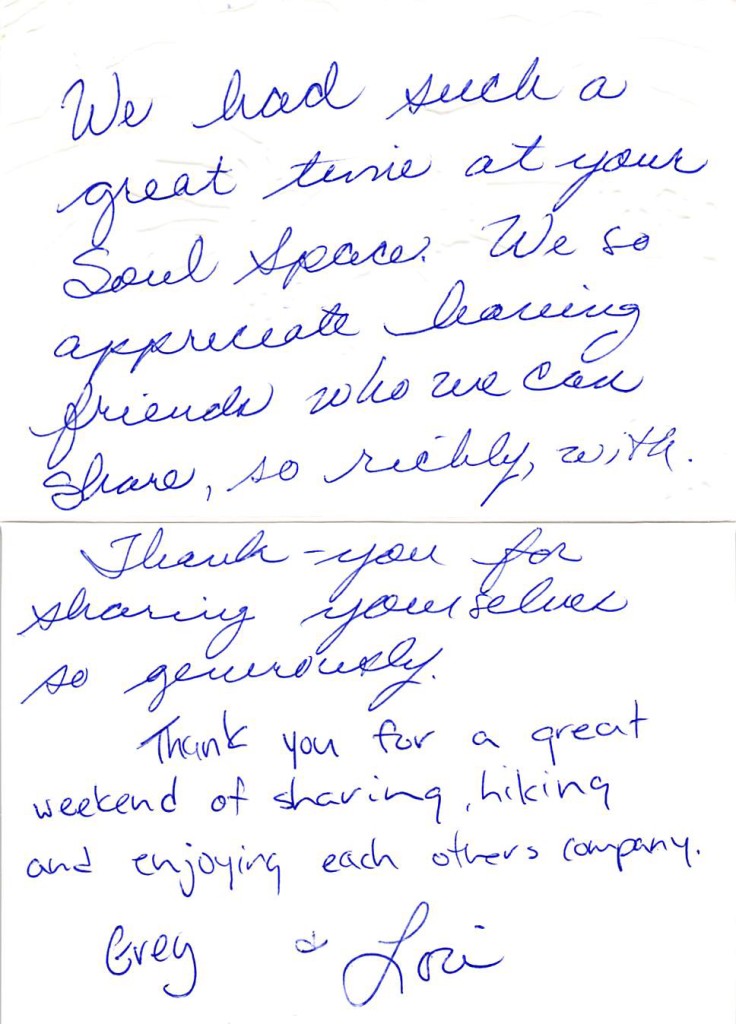 We had such a
great time at your
Soul Space. We so
appreciate having
friends who we can
share, so richly, with.
Thank-you for
sharing yourselves
so generously.
Thank you for a great
weekend of sharing, hiking
and enjoying each others company.
Greg & Lori